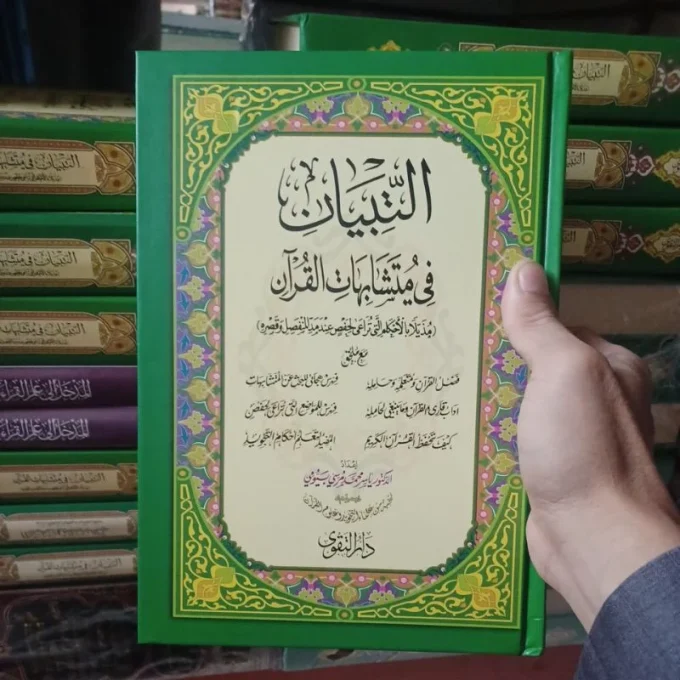 التِّبيَان
فِي مُتَشَابِهَاتِ القُرْآن
(مُذَيَّلًا بِالأحْكَامِ الَّتِي تُرَاعَى لِحَفْصٍ عِنْدَ مَدِّ المُنْفَصِلِ وَقَصْرِهِ)
مع ملحق
فضل القرآن ومتعلمه وحامله
فهرس هجائي للبحث عن المتشابهات
آداب قارئ القرآن وما ينبغي لحامله
فهرس للمواضع التي تراعى لحفص
كيف تحفظ القرآن الكريم
المفيد لتعليم أحكام التجويد
إعداد
الدكتور ياسر محمد مرسي بيومي
دار التقوى
التبيان في متشابهات القرآن
التبيان في متشابهات القرآن
التبيان في متشابهات القرآن
المدخل إلى علم القراءات
المدخل إلى علم القراءات
التبيان في متشابهات القرآن
التبيان في متشابهات القرآن
التبيان في متشابهات القرآن
التبيان
التبيان